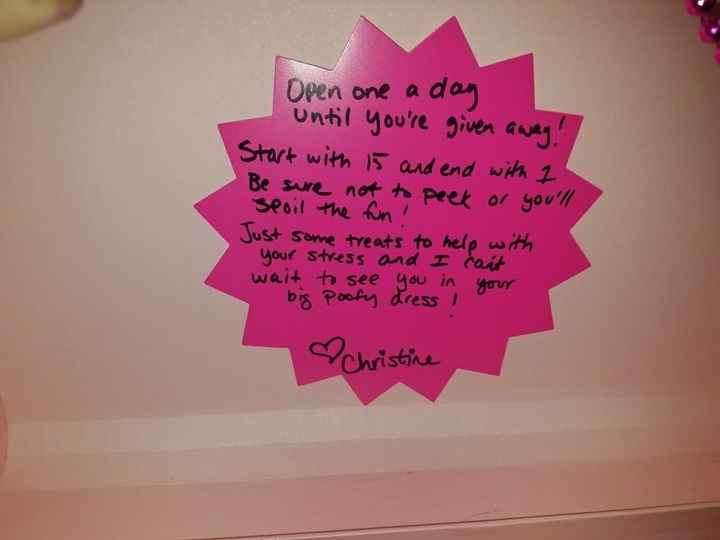 Open one a day
until you're given away!
Start with 15 and end with 1
Be sure not to peek or you'll
spoil the fun!
Just some treats to help with
your stress and I can't
wait to see you in your
big poofy dress!
♡Christine